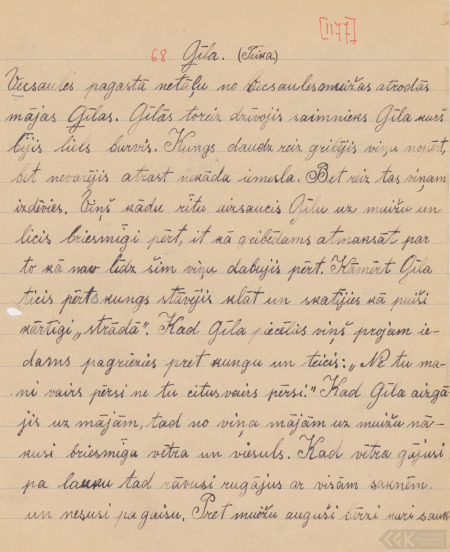 [1177]
68 Gīla. (Teika)
Vecsaules pagastā netāļu no Vecsaulesmuižas atrodās
mājas Gīlas. Gīlās toreiz dzīvojis saimnieks Gīla kurš
bijis liels burvis. Kungs daudzreiz gribējis viņu nopērt,
bet nevarējis atrast nekāda iemesla. Bet reiz tas viņam
izdevies. Viņš kādu rītu aizsaucis Gīlu uz muižu un
licis briesmīgi pērt, it kā gribēdams atmaksāt par
to kā nav līdz šim viņu dabujis pērt. Kāmērt Gīla
ticis pērts kungs stāvējis klāt un skatījies kā puiši
kārtīgi „strādā“. Kad Gīla piecēlies viņš projam ie-
dams pagriezies pret kungu un teicis: „Ne tu ma-
ni vairs pērsi ne tu citus vairs pērsi.“ Kad Gīla aizgā-
jis uz mājām, tad no viņa mājām uz muižu nā-
kusi briesmīga vētra un viesuls. Kad vētra gājusi
pa lauku tad rāvusi rugājus ar visām saknēm
un nesusi pa gaisu. Pret muižu auguši bērzi kuri sauk